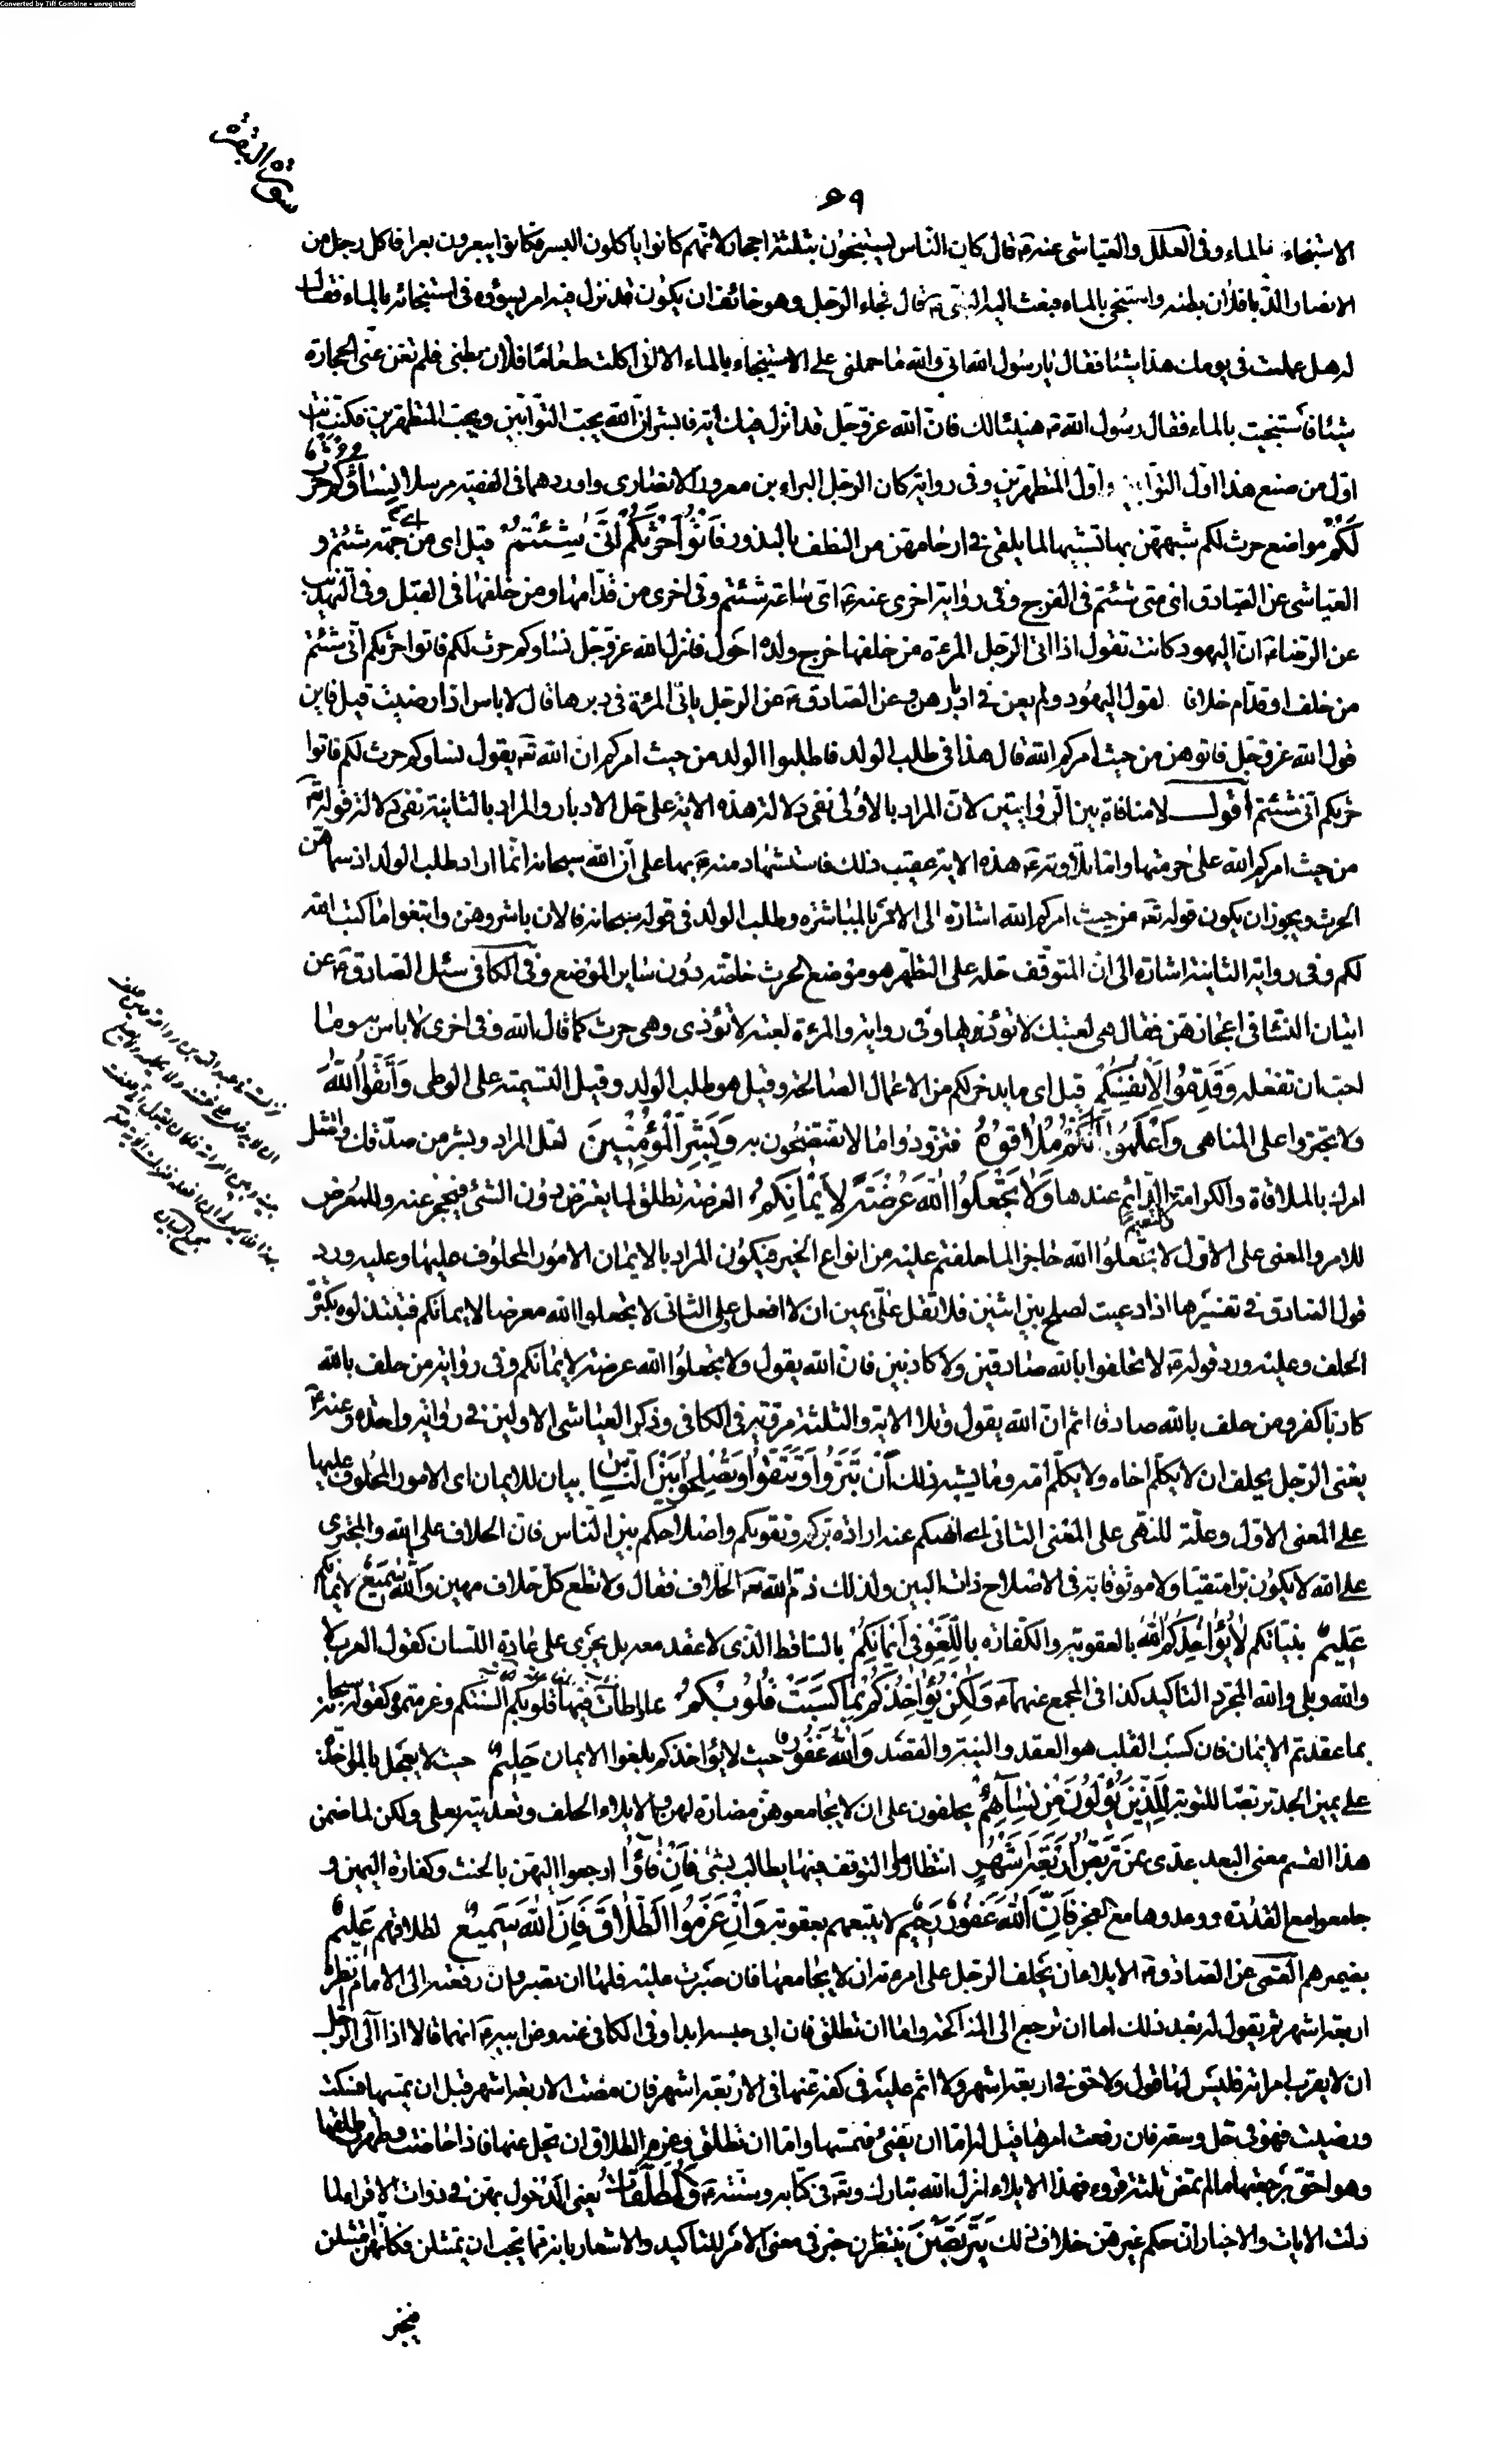 Converted by Tiff Combine - unregistered
سورة البقرة
٦٩
الاستنجاء بالماء وفى العلل والعياشى عنه ع قال كان الناس يستنجون بثلثة احجار لانهم كانوا ياكلون البسر فكانوا يبعرون بعرا فاكل رجل من
الانصار الدبا فلان بطنه واستنجى بالماء فبعث اليه النبى ص قال فجاء الرجل وهو خائف ان يكون قد نزل فيه امر يسوؤه فى استنجائه بالماء فقال
له هل عملت فى يومك هذا شيئا فقال يا رسول الله انى والله ما حملنى على الاستنجاء بالماء الا انى اكلت طعاما فلان بطنى فلم تغن عنى الحجارة
شيئا فاستنجيت بالماء فقال رسول الله ص هنيئا لك فان الله عز وجل قد انزل فيك اية فابشر ان الله يحب التوابين ويحب المتطهرين فكنت انت
اول من صنع هذا اول التوابين واول المتطهرين وفى رواية كان الرجل البراء بن معرور الانصارى واوردهما فى الفقيه مرسلا نِسَاؤُكُمْ حَرْثٌ
لَكُمْ مواضع حرث لكم شبههن بها تشبيها لما يلقى فى ارحامهن من النطف بالبذور فَأْتُوا حَرْثَكُمْ أَنَّىٰ شِئْتُمْ قيل اى من اى جهة شئتم و
العياشى عن الصادق اى متى شئتم فى الفرج وفى رواية اخرى عنه ع اى ساعة شئتم وفى اخرى من قدامها ومن خلفها فى القبل وفى التهذيب
عن الرضا ع ان اليهود كانت تقول اذا اتى الرجل المرءة من خلفها خرج ولده احول فانزل الله عز وجل نساوكم حرث لكم فاتوا حرثكم انى شئتم
من خلف او قدام خلافا لقول اليهود ولم يعن فى ادبارهن وعن الصادق ع عن الرجل ياتى المرئة فى دبرها قال لا باس اذا رضيت قيل فاين
قول الله عز وجل فاتوهن من حيث امركم الله قال هذا فى طلب الولد فاطلبوا الولد من حيث امركم ان الله تع يقول نساوكم حرث لكم فاتوا
حرثكم انى شئتم اقول لا منافاة بين الروايتين لان المراد بالاولى نفى دلالة هذه الاية على حل الادبار والمراد بالثانية نفى دلالة قوله تع
من حيث امركم الله على حرمتها واما تلاوته ع هذه الاية عقيب ذلك فاستشهاد منه ع بها على ان الله سبحانه انما اراد طلب الولد اذ سماهن
الحرث ويجوز ان يكون قوله تع من حيث امركم الله اشارة الى الامر بالمباشرة وطلب الولد فى قوله سبحانه فالان باشروهن وابتغوا ما كتب الله
لكم وفى رواية الثانية اشارة الى ان المتوقف حله على التطهر هو موضع الحرث خاصة دون ساير المواضع وفى الكافى سئل الصادق ع عن
اتيان النساء فى اعجازهن فقال هى لعبتك لا تؤذيها وفى رواية والمرءة لعبة لا تؤذى وهى حرث كما قال الله وفى اخرى لا باس به وما
احب ان تفعله وَقَدِّمُوا لِأَنْفُسِكُمْ قيل اى ما يدخر لكم من الاعمال الصالحة وقيل هو طلب الولد وقيل التسمية على الوطى وَاتَّقُوا اللَّهَ
ولا تجتروا على المناهى وَاعْلَمُوا أَنَّكُمْ مُلَاقُوهُ فتزودوا ما لا تفتضحون به وَبَشِّرِ الْمُؤْمِنِينَ لعل المراد وبشر من صدقك وامتثل
امرك بالملاقاة والكرامة والنعيم الدائم عندها وَلَا تَجْعَلُوا اللَّهَ عُرْضَةً لِأَيْمَانِكُمْ العرضة تطلق لما يعترض دون الشئ فيحجز عنه وللمعرض
للامر والمعنى على الاول لا تجعلوا الله حاجزا لما حلفتم عليه من انواع الخير فيكون المراد بالايمان الامور المحلوف عليها وعليه ورد
قول الصادق فى تفسيرها اذا دعيت لصلح بين اثنين فلا تقل على يمين ان لا افعل وعلى الثانى لا تجعلوا الله معرضا لايمانكم فتبتذلوه بكثرة
الحلف وعليه ورد قوله ع لا تحلفوا بالله صادقين ولا كاذبين فان الله يقول ولا تجعلوا الله عرضة لايمانكم وفى رواية من حلف بالله
كاذبا كفر ومن حلف بالله صادقا اثم ان الله يقول وتلا الاية والثلثة مروية فى الكافى وذكر العياشى الاولين فى رواية واحدة وعنه ع
يعنى الرجل يحلف ان لا يكلم اخاه ولا يكلم امه وما يشبه ذلك أَنْ تَبَرُّوا وَتَتَّقُوا وَتُصْلِحُوا بَيْنَ النَّاسِ بيان للايمان اى الامور المحلوف عليها
على المعنى الاول وعلة للنهى على المعنى الثانى اى انهيكم عنه ارادة بركم وتقويكم واصلاحكم بين الناس فان الحلاف على الله والمجترى
على الله لا يكون برا متقيا ولا موثوقا به فى الاصلاح ذات البين ولذلك ذم الله تع الحلاف فقال ولا تطع كل حلاف مهين وَاللَّهُ سَمِيعٌ لايمانكم
عَلِيمٌ بنياتكم لَا يُؤَاخِذُكُمُ اللَّهُ بالعقوبة والكفارة بِاللَّغْوِ فِي أَيْمَانِكُمْ بالساقط الذى لا عقد معه بل يجرى على عادة اللسان كقول العرب لا
والله وبلى والله لمجرد التاكيد كذا فى المجمع عنهما ع وَلَٰكِنْ يُؤَاخِذُكُمْ بِمَا كَسَبَتْ قُلُوبُكُمْ بما واطات فيها قلوبكم السنتكم وعزمتموه كقوله سبحانه
بما عقدتم الايمان فان كسب القلب هو العقد والنية والقصد وَاللَّهُ غَفُورٌ حيث لا يؤاخذكم بلغو الايمان حَلِيمٌ حيث لا يعجل بالمؤاخذة
على يمين الجد تربصا للتوبة لِلَّذِينَ يُؤْلُونَ مِنْ نِسَائِهِمْ يحلفون على ان لا يجامعوهن مضارة لهن والايلاء الحلف وتعديته بعلى ولكن لما ضمن
هذا القسم معنى البعد عدى بمن تَرَبُّصُ أَرْبَعَةِ أَشْهُرٍ انتظارها والتوقف فيها يطالب بشئ فَإِنْ فَاءُوا ارجعوا اليهن بالحنث وكفارة اليمين و
جامعوا مع القدرة ووعدوها مع العجز فَإِنَّ اللَّهَ غَفُورٌ رَحِيمٌ لا يتبعهم بعقوبة وَإِنْ عَزَمُوا الطَّلَاقَ فَإِنَّ اللَّهَ سَمِيعٌ لطلاقهم عَلِيمٌ
بضميرهم القمى عن الصادق ع الايلاء ان يحلف الرجل على امرءته ان لا يجامعها فان صبرت عليه فلها ان تصبر وان رفعته الى الامام انظره
اربعة اشهر ثم يقول له بعد ذلك اما ان ترجع الى المناكحة واما ان تطلق فان ابى حبسه ابدا وفى الكافى عنه وعن ابيه ع انهما قالا اذا آلى الرجل
ان لا يقرب امراته فليس لها قول ولا حق فى اربعة اشهر ولا اثم عليه فى كفه عنها فى الاربعة اشهر فان مضت الاربعة اشهر قبل ان يمسها فسكتت
ورضيت فهو فى حل وسعة فان رفعت امرها قيل له اما ان تفئ فتمسها واما ان تطلق وعزم الطلاق ان يخلى عنها فاذا حاضت وطهرت طلقها
وهو احق برجعتها ما لم تمض ثلثة قروء فهذا الايلاء انزل الله تبارك وتع فى كتابه وسنته ع وَالْمُطَلَّقَاتُ يعنى المدخول بهن فى ذوات الاقراء لما
دلت الايات والاخبار ان حكم غيرهن خلاف ذلك يَتَرَبَّصْنَ ينتظرن خبر فى معنى الامر للتاكيد والاشعار بانه مما يجب ان يمتثلن فكانهن امتثلن